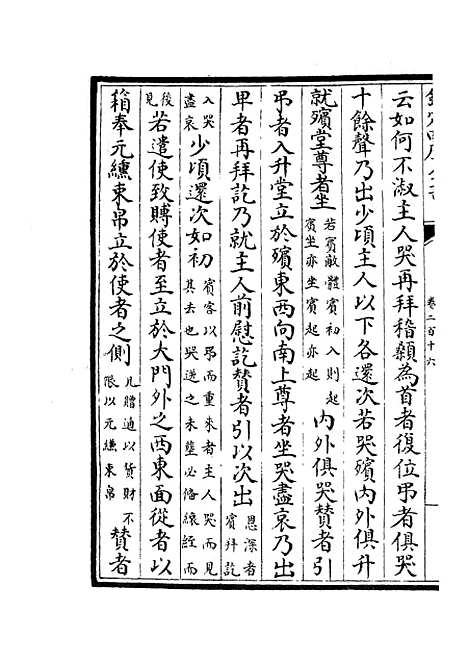 卷二百十六
云如何不淑主人哭再拜稽顙為首者復位弔者俱哭
十餘聲乃出少頃主人以下各還次若哭殯内外俱升
就殯堂尊者坐若賓敵體賓初入則起賓坐亦坐賓起亦起内外俱哭賛者引
弔者入升堂立於殯東西向南上尊者坐哭盡哀乃出
卑者再拜訖乃就主人前慰訖賛者引以次出恩深者賓拜訖
入哭盡哀少頃還次如初賓客以弔而重來者主人哭而見其去也哭送之未塟必備縗絰而
後見若遣使致賻使者至立於大門外之西東面從者以
箱奉元纁束帛立於使者之側凡贈遺以貨財不限以元纁束帛賛者